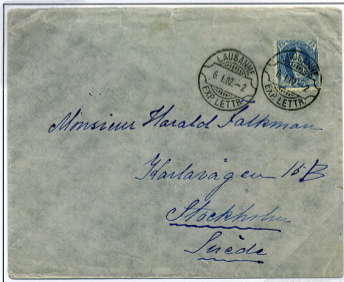 LAUSANNE
6.I.02.-2
EXP. LETTR.
LAUSANNE
EXP. LETTR.
25
Monsieur Harald Falkman
Karlavägen 15B
Stockholm
Suède